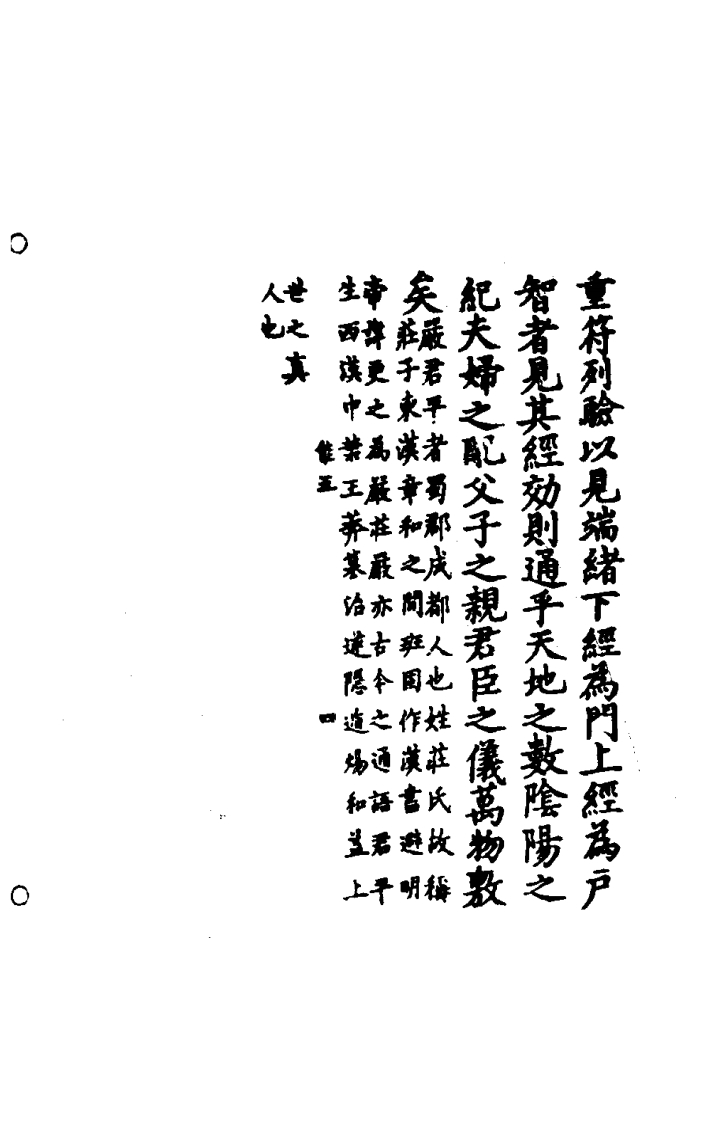 重符列驗以見端緒下經為門上經為戶
智者見其經効則通乎天地之數陰陽之
紀夫婦之配父子之親君臣之儀萬物敷
矣嚴君平者蜀郡成都人也姓莊氏故稱
莊子東漢章和之間班固作漢書避明
帝諱更之為嚴莊嚴亦古今之通語君平
生西漢中葉王莽篡治遂隱遁煬和蓋上
能五 四
世之真
人也